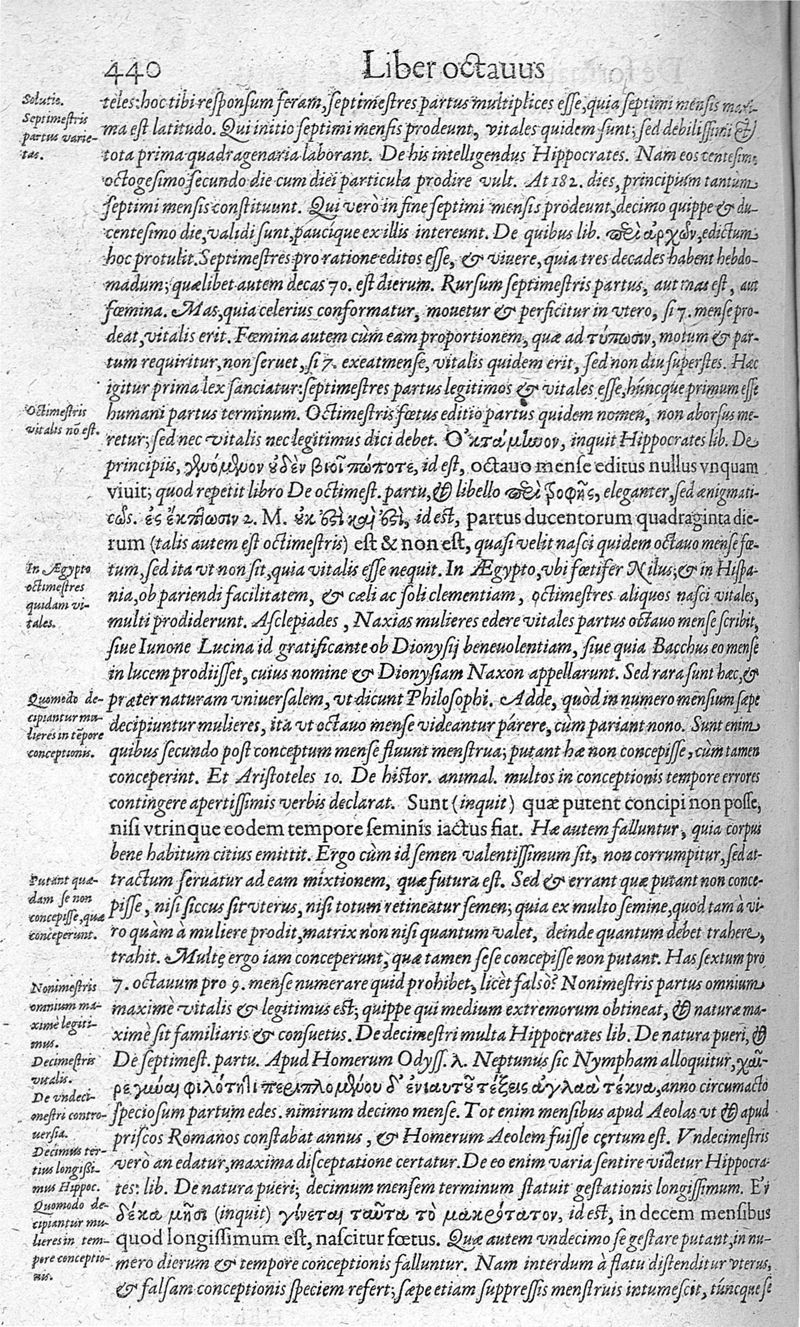 440 Liber octavus
Solutio.
Septimestris
partus varie-
tas.
teles: hoc tibi responsum feram, septimestres partus multiplices esse, quia septimi mensis maxi-
ma est latitudo. Qui initio septimi mensis prodeunt, vitales quidem sunt; sed debilissimi &
tota prima quadragenaria laborant. De his intelligendus Hippocrates. Nam eos centesimo
octogesimo secundo die cum diei particula prodire vult. At 182. dies, principium tantùm
septimi mensis constituunt. Qui verò in fine septimi mensis prodeunt, decimo quippe & du-
centesimo die, validi sunt, paucíque ex illis intereunt. De quibus lib. περὶ ἀρχῶν, edictum
hoc protulit. Septimestres pro ratione editos esse, & viuere, quia tres decades habent hebdo-
madum; quælibet autem decas 70. est dierum. Rursum septimestris partus, aut mas est, aut
fœmina. Mas, quia celerius conformatur, mouetur & perficitur in vtero, si 7. mense pro-
deat, vitalis erit. Fœmina autem cùm eam proportionem, quæ ad τύπωσιν, motum & par-
tum requiritur, non seruet, si 7. exeat mense, vitalis quidem erit, sed non diu superstes. Hæc
igitur prima lex sanciatur: septimestres partus legitimos & vitales esse, húncque primum esse
Octimestris
vitalis nõ est.
humani partus terminum. Octimestris fœtus editio partus quidem nomen, non aborsus me-
retur; sed nec vitalis nec legitimus dici debet. Ὀκτάμηνον, inquit Hippocrates lib. De
principiis, γενόμενον οὐδὲν βιοῖ πώποτε, id est, octauo mense editus nullus vnquam
viuit; quod repetit libro De octimest. partu, & libello περὶ τροφῆς, eleganter, sed ænigmati-
cῶς. ἐς ἔκπτωσιν 2. M. οὐκ ἔστι καὶ ἔστι, id est, partus ducentorum quadraginta die-
rum (talis autem est octimestris) est & non est, quasi velit nasci quidem octauo mense fœ-
In Ægypto
octimestres
quidam vi-
tales.
tum, sed ita vt non sit, quia vitalis esse nequit. In Ægypto, vbi fœtifer Nilus; & in Hispa-
nia, ob pariendi facilitatem, & cæli ac soli clementiam, octimestres aliquos nasci vitales,
multi prodiderunt. Asclepiades, Naxias mulieres edere vitales partus octauo mense scribit,
siue Iunone Lucina id gratificante ob Dionysij beneuolentiam, siue quia Bacchus eo mense
in lucem prodiisset, cuius nomine & Dionysiam Naxon appellarunt. Sed rara sunt hæc, &
Quomodo de-
cipiantur mu-
lieres in tẽpore
conceptionis.
præter naturam vniuersalem, vt dicunt Philosophi. Adde, quòd in numero mensium sæpe
decipiuntur mulieres, ita vt octauo mense videantur párere, cùm pariant nono. Sunt enim
quibus secundo post conceptum mense fluunt menstrua; putant hæ non concepisse, cùm tamen
conceperint. Et Aristoteles 10. De histor. animal. multos in conceptionis tempore errores
contingere apertissimis verbis declarat. Sunt (inquit) quæ putent concipi non posse,
nisi vtrinque eodem tempore seminis iactus fiat. Hæ autem falluntur, quia corpus
bene habitum citius emittit. Ergo cùm id semen valentissimum sit, non corrumpitur, sed at-
Putant quæ-
dam se non
concepisse, quæ
conceperunt.
tractum seruatur ad eam mixtionem, quæ futura est. Sed & errant quæ putant non conce-
pisse, nisi siccus sit vterus, nisi totum retineatur semen; quia ex multo semine, quod tam à vi-
ro quàm à muliere prodit, matrix non nisi quantum valet, deinde quantum debet trahere,
trahit. Multę ergo iam conceperunt, quæ tamen sese concepisse non putant. Has sextum pro
Nonimestris
omnium ma-
ximè legiti-
mus.
7. octauum pro 9. mense numerare quid prohibet, licèt falsò? Nonimestris partus omnium
maximè vitalis & legitimus est; quippe qui medium extremorum obtineat, & naturæ ma-
ximè sit familiaris & consuetus. De decimestri multa Hippocrates lib. De natura pueri, &
Decimestris
vitalis.
De vndeci-
mestri contro-
uersia.
De septimest. partu. Apud Homerum Odyss. λ. Neptunus sic Nympham alloquitur, χαῖ-
ρε γύναι φιλότητι περιπλομένου δ᾽ ἐνιαυτοῦ τέξεις ἀγλαὰ τέκνα, anno circumacto
speciosum partum edes. nimirum decimo mense. Tot enim mensibus apud Aeolas vt & apud
priscos Romanos constabat annus, & Homerum Aeolem fuisse certum est. Vndecimestris
Decimus ter-
tius longißi-
mus Hippoc.
Quomodo de-
cipiantur mu-
lieres in tem-
pore conceptio-
nis.
verò an edatur, maxima disceptatione certatur. De eo enim varia sentire videtur Hippocra-
tes: lib. De natura pueri; decimum mensem terminum statuit gestationis longissimum. Ἐν
δέκα μησὶ (inquit) γίνεται ταῦτα τὸ μακρότατον, id est, in decem mensibus
quod longissimum est, nascitur fœtus. Quæ autem vndecimo se gestare putant, in nu-
mero dierum & tempore conceptionis falluntur. Nam interdum à flatu distenditur vterus,
& falsam conceptionis speciem refert; sæpe etiam suppressis menstruis intumescit, túncque se